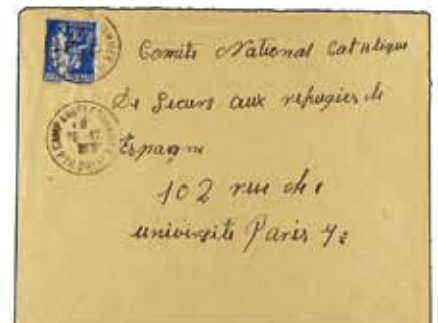 Comite National Catolique
de Secours aux refugies de
Espagne
102 rue de
université Paris 7e